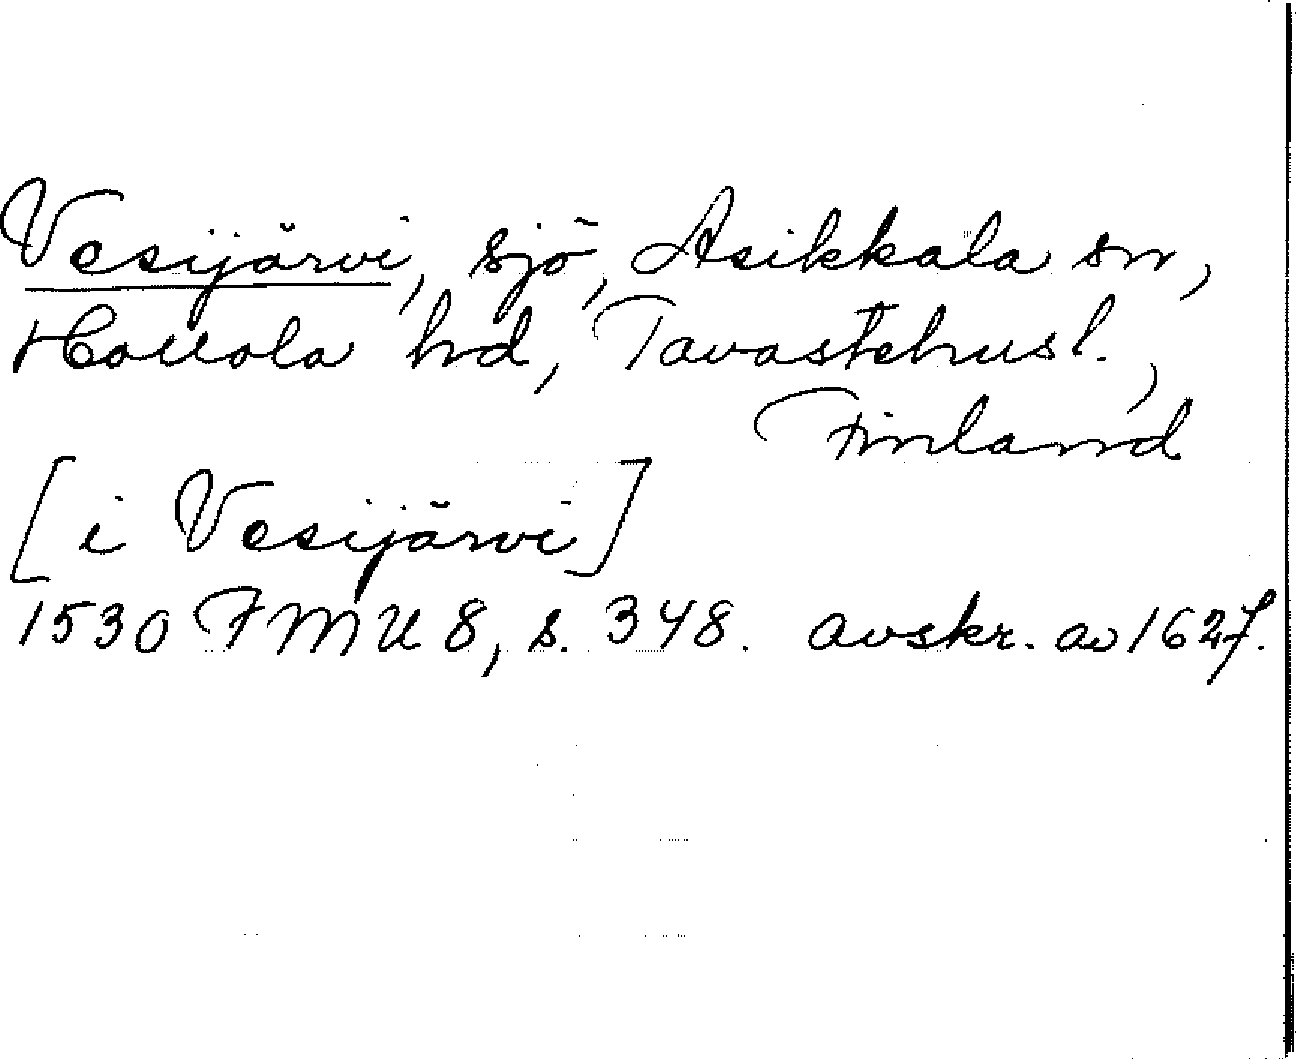 Vesijärvi, sjö, Asikkala sn,
Hollola hd, Tavastehus l.,
Finland
[i Vesijärvi]
1530 FMU 8, s. 348. avskr. av 1627.